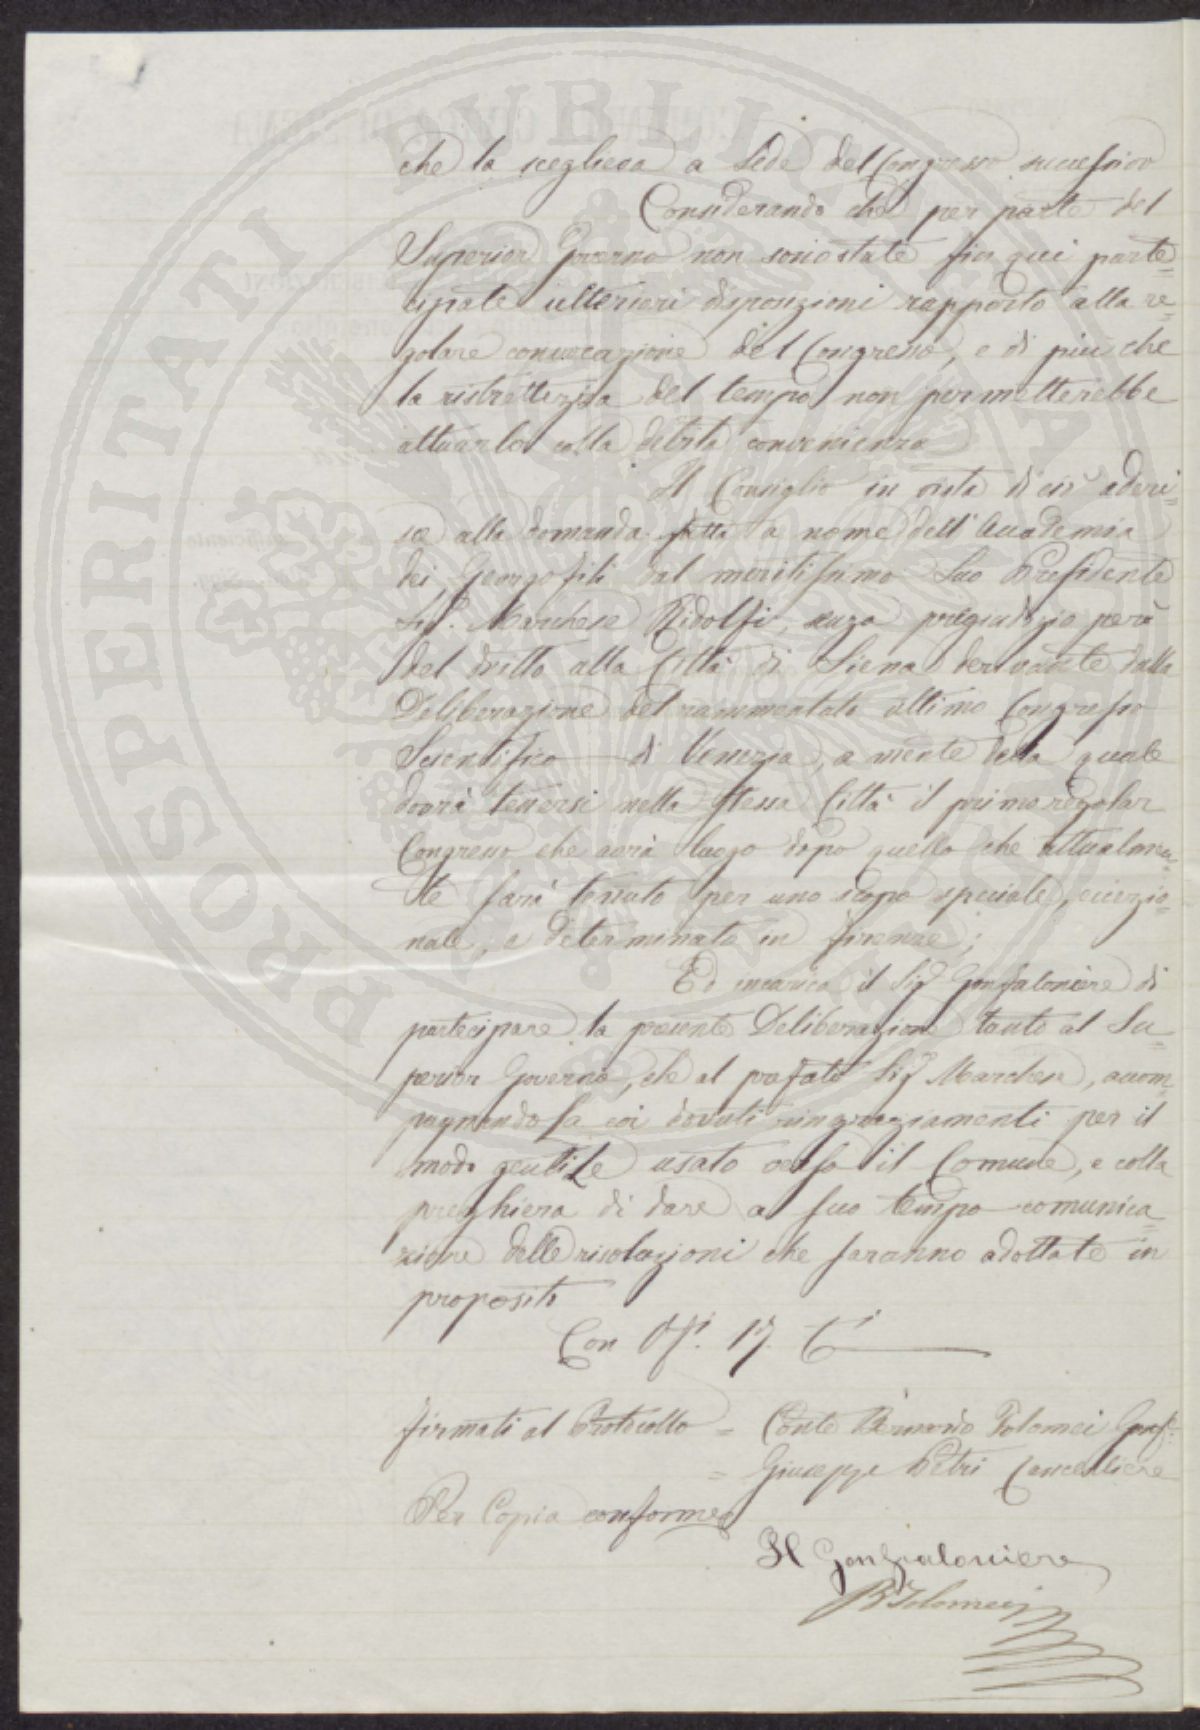 che la sceglieva a Sede del Congresso successivo
Considerando che per parte del
Superior Governo non sono state fin qui parte=
cipate ulteriori disposizioni rapporto alla re=
golare convocazione del Congresso, e di più che
la ristrettezza del tempo non permetterebbe
attuarlo colla debita convenienza
Il Consiglio in vista di ciò aderi=
sce alla domanda fatta a nome dell'Accademia
dei Georgofili dal meritissimo Suo Presidente
Sig.r Marchese Ridolfi, senza pregiudizio però
del dritto alla Città di Siena derivante dalla
Deliberazione del rammentato ultimo Congresso
Scientifico di Venezia, a mente della quale
dovrà tenersi nella stessa Città il primo regolar
Congresso che avrà luogo dopo quello che attualmen=
te sarà tenuto per uno scopo speciale, eccezio=
nale, e determinato in Firenze;
Ed incarica il Sig.r Gonfaloniere di
partecipare la presente Deliberazione tanto al Su=
perior Governo, che al prefato Sig.r Marchese, accom=
pagnandola coi dovuti ringraziamenti per il
modo gentile usato verso il Comune, e colla
preghiera di dare a suo tempo comunica=
zione delle risoluzioni che saranno adottate in
proposito
Con Vti. 17. Ci
Firmati al Protocollo = Conte Bernardo Tolomei Gonf:
= Giuseppe Petri Cancelliere
Per Copia conforme
Il Gonfaloniere
B Tolomei
PROSPERITATI PUBLICAE